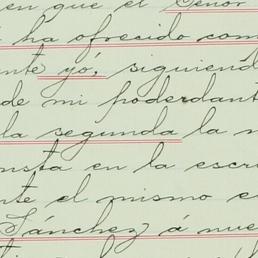 en que el Señor
ha ofrecido com
nte yó, siguiend
de mi poderdant
la segunda la n
nsta en la escri
nte el mismo e
Sánchez á nue